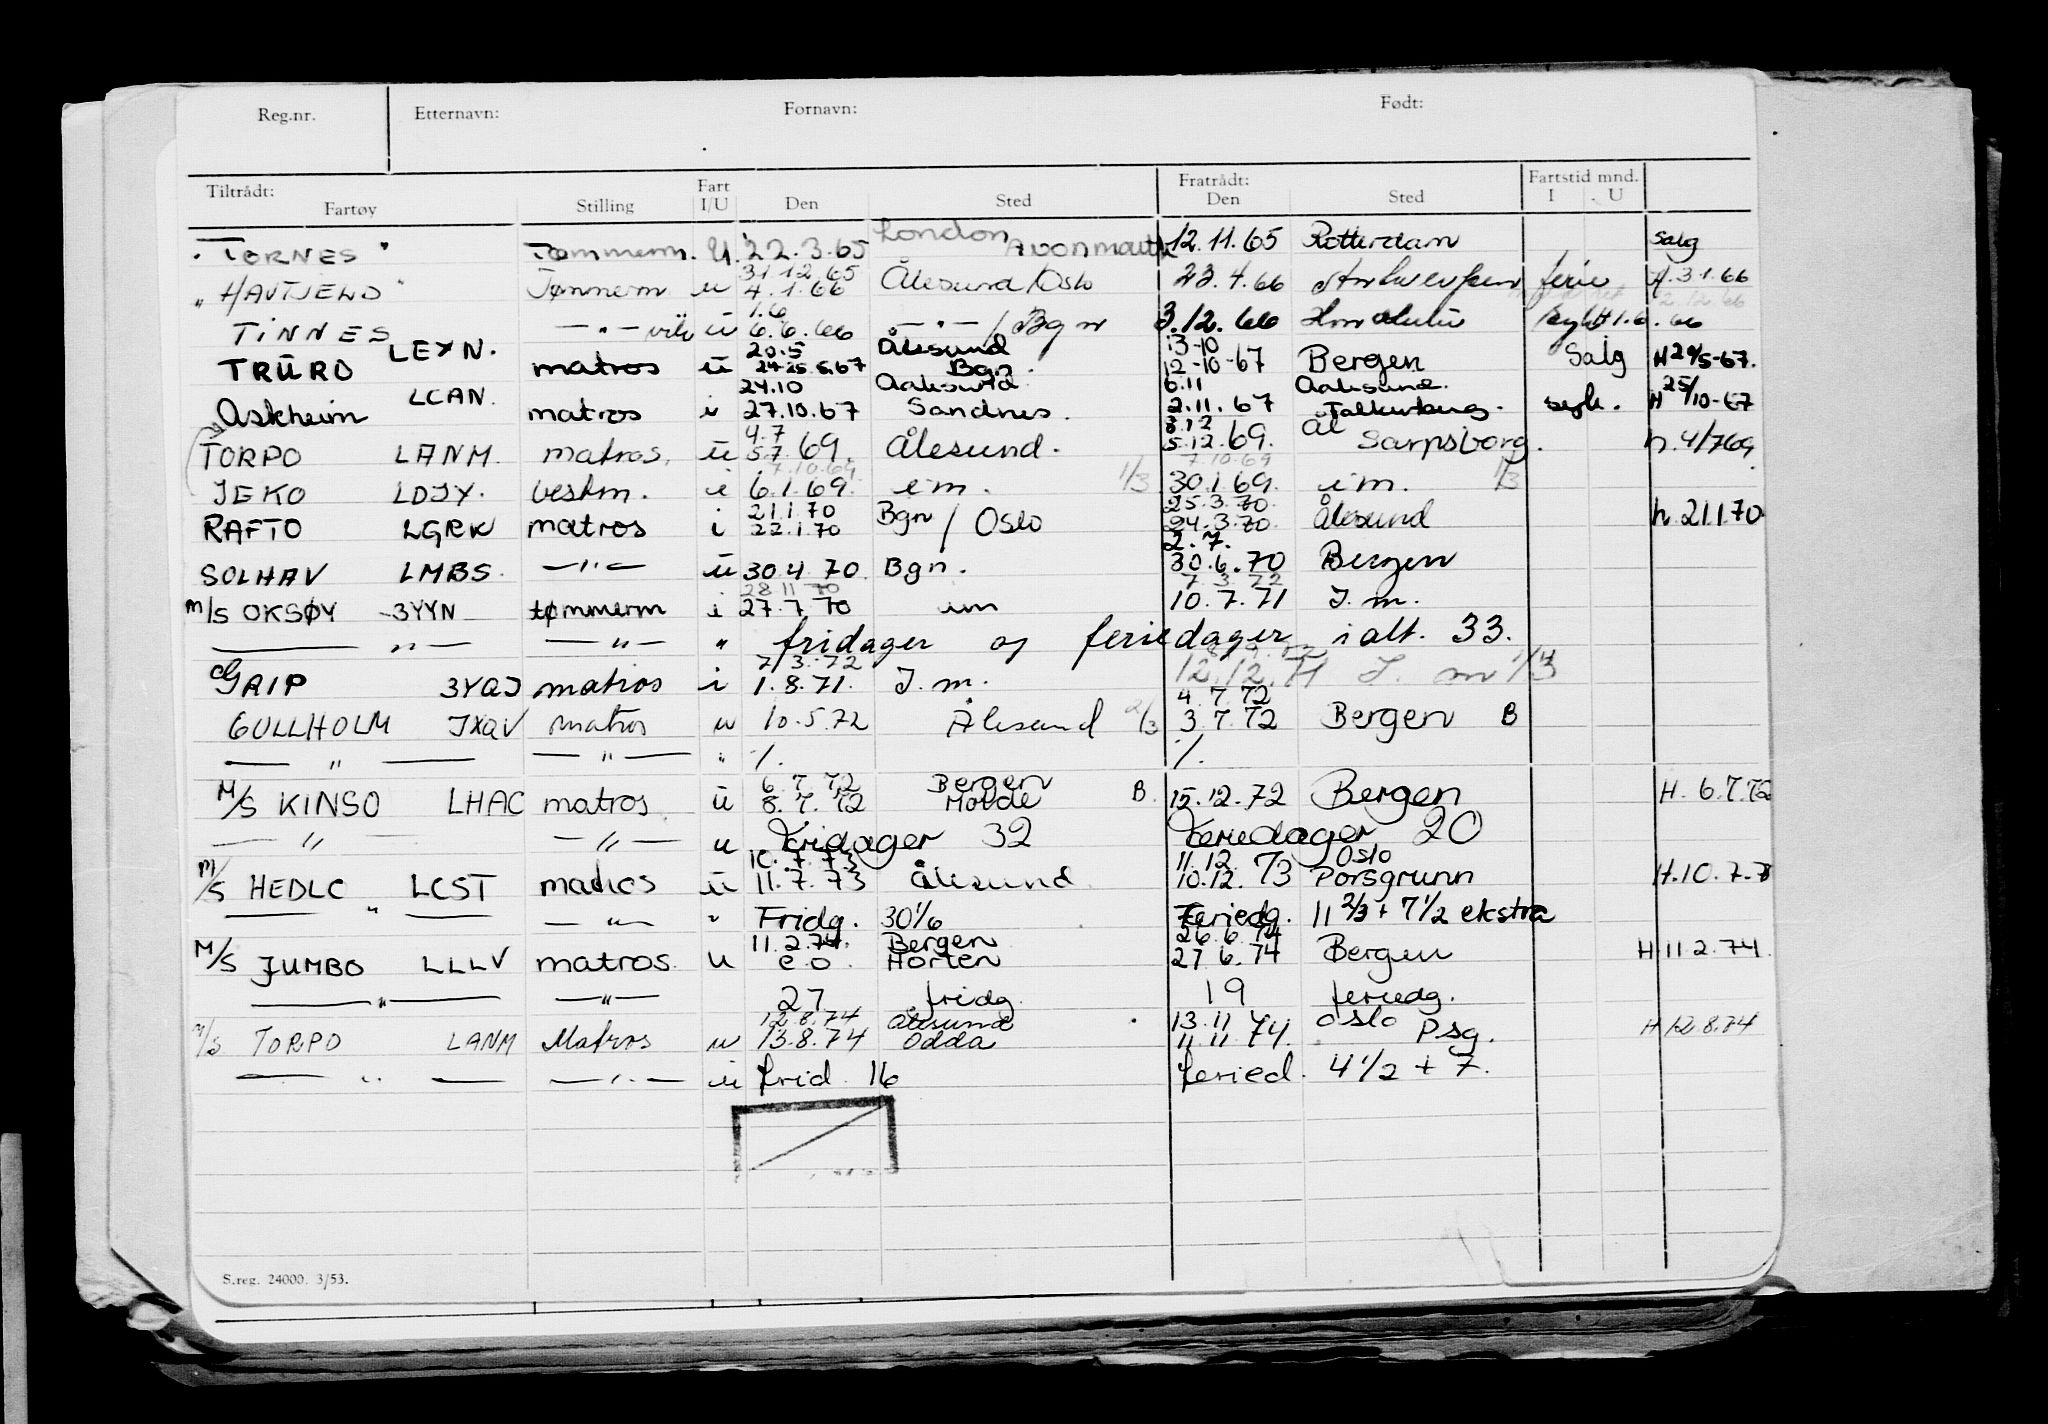 Reg.nr. Etternavn: Fornavn: Født:
Tiltrådt: Fart Fratrådt: Fartstid mnd.
Fartøy Stilling I/U Den Sted Den Sted I U
London
"TORNES" Tømmerm. U. 22.3.65 Avonmouth 12.11.65 Rotterdam Salg
31.12.65
"HAVTJELD" Tømmerm u 4.1.66 Ålesund/Oslo 23.4.66 Antwerpen ferie H.3.1.66
1.6
TINNES —"— u 6.6.66 —"—/Bgn 3.12.66 Honolulu H1.6.66
20.5 Ålesund 13-10
TRURO LEXN. matros u 67 Bgn. 12-10-67 Bergen Salg H 20/5-67.
24.10 Aalesund 6.11 Aalesund.
Askheim LCAN. matros i 27.10.67 Sandnes. 2.11.67 Falkenberg. syk. H 25/10-67
4.7 8.12 Ål
TORPO LANM. matros, u 5.7 69. Ålesund. 5.12.69. Sarpsborg. h.4/769
7.10.69 7.10.69
JEKO LDJY. bestm. i 6.1.69. i m. 1/3 30.1.69. i m. 1/3
21.1.70 25.3.70.
RAFTO LGRK matros i 22.1.70 Bgn / Oslo 24.3.70. Ålesund h.21.1.70
2.7.
SOLHAV LMBS. —"— u 30.4.70. Bgn. 30.6.70 Bergen
28.11.70 7.3.72
M/S OKSØY 3YYN tømmerm i 27.7.70 im 10.7.71 I.m.
—"— —"— " fridager og feriedager ialt. 33.
7/3.72
GRIP 3YQJ matros i 1.8.71. I.m. 12.12.71 I.m 1/3
4.7.72
GULLHOLM JXQV matros u 10.5.72 Ålesund 2/3 3.7.72 Bergen B
—"— —"— " /. /.
6.7.72 Bergen
M/S KINSO LHAC matros u 8.7.72 Molde B. 15.12.72 Bergen H. 6.7.72
—"— —"— u Fridager 32 Feriedager 20
10.7.73 11.12. Oslo
M/S HEDLO LCST matros u 11.7.73 Ålesund. 10.12.73 Porsgrunn H.10.7.7
—"— —"— " Fridg. 30 1/6 Feriedg. 11 2/3 + 7 1/2 ekstra
11.2.74. Bergen 26.6.74
M/S JUMBO LLLV matros. u e.o. Horten 27.6.74 Bergen H 11.2.74.
—"— —"— 27 fridg. 19 feriedg.
12.8.74 Ålesund 13.11 Oslo
M/S TORPO LANM Matros u 13.8.74 Odda 11.11.74. Psg. H 12.8.74
—"— —"— u frid. 16 feried. 4 1/2 + 7.
S.reg. 24000. 3/53.